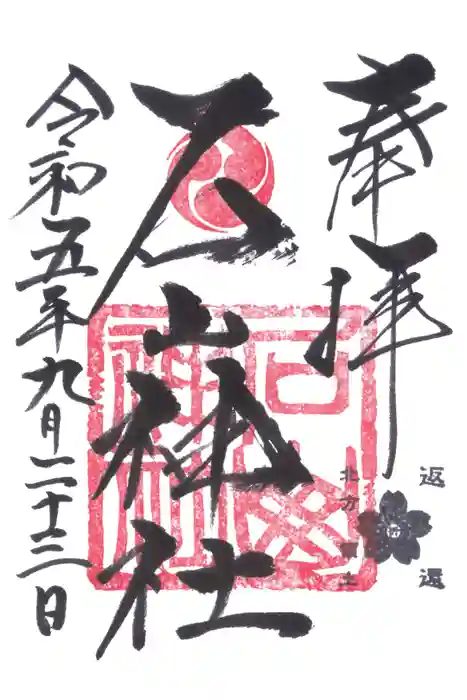 奉拝
石山神社
令和五年九月二十三日
北方領土
返還